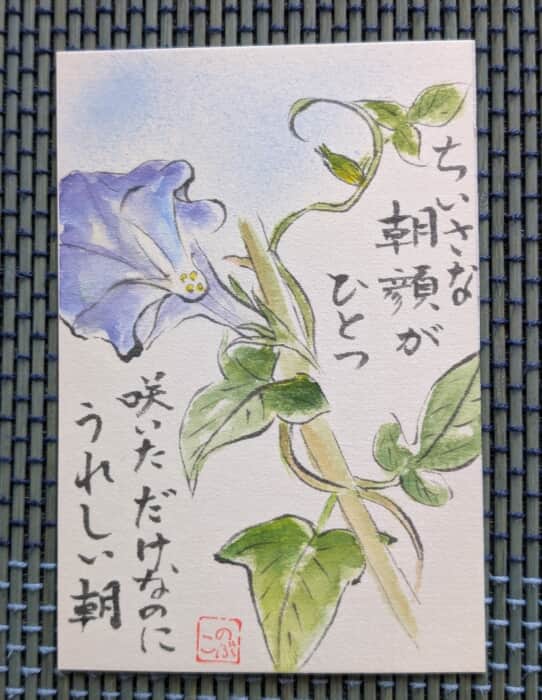 ちいさな
朝顔が
ひとつ
咲いただけなのに
うれしい朝
のぶこ